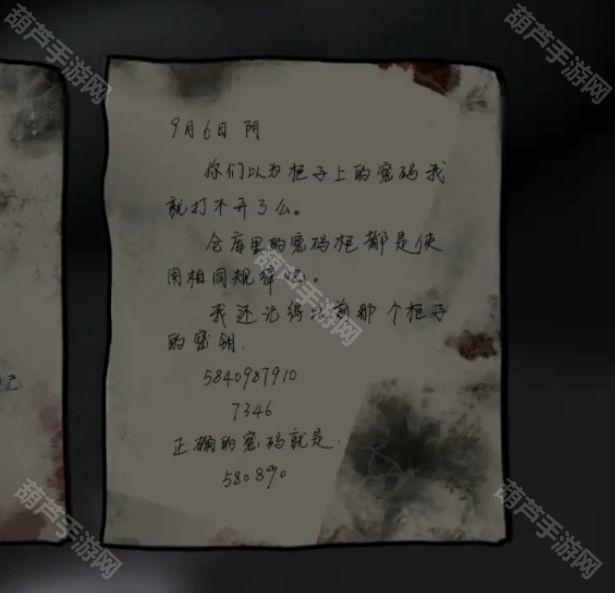 9月6日 阴
你们以为柜子上的密码我
就打不开了么。
仓库里的密码柜都是使
用相同规律吧。
我还记得以前那个柜子
的密钥.
5840987910
7346
正确的密码就是:
580890
己
葫芦手游网
葫芦手游网
葫芦手游网
葫芦手游网
葫芦手游网